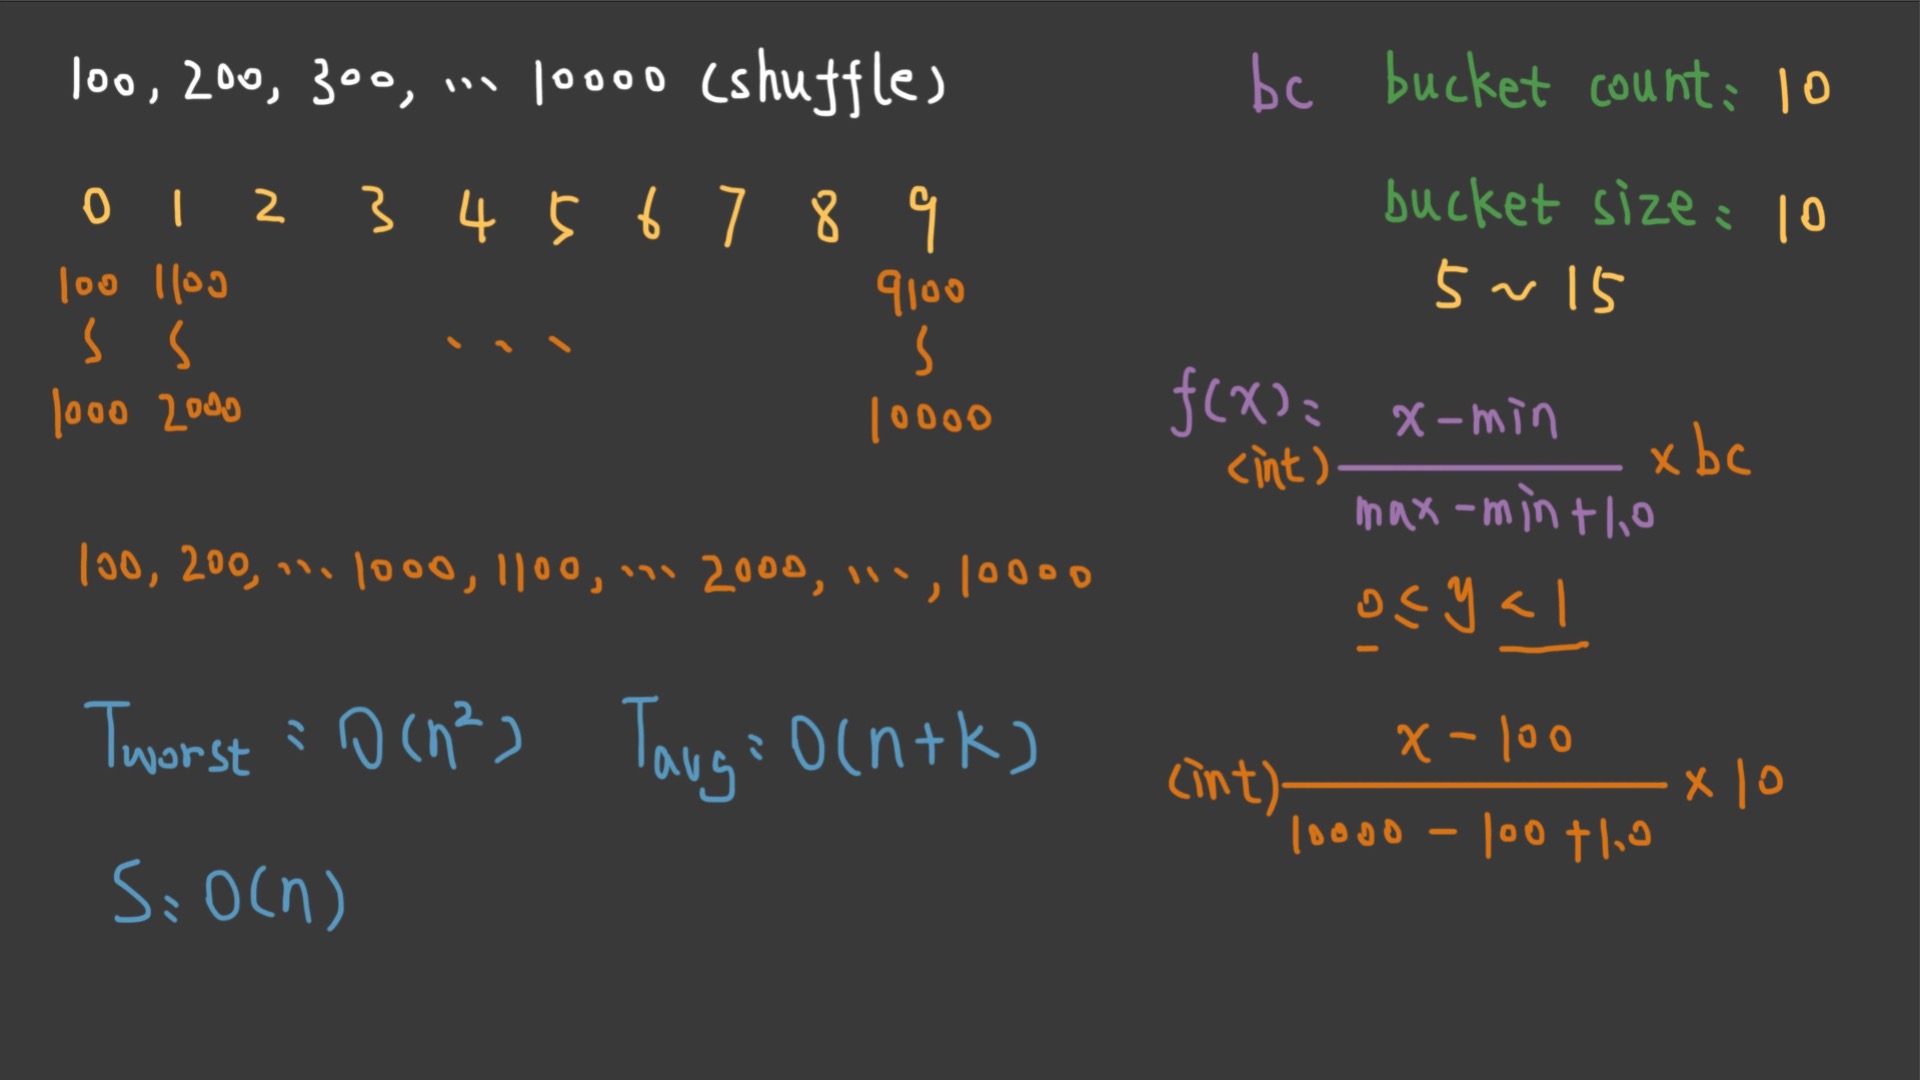 100, 200, 300, ... 10000 (shuffle)
0 1 2 3 4 5 6 7 8 9
100 1100 9100
∫ ∫ ... ∫
1000 2000 10000
100, 200, ... 1000, 1100, ... 2000, ..., 10000
Tworst: O(n²) Tavg: O(n+k)
S: O(n)
bc bucket count: 10
bucket size: 10
5 ~ 15
f(x): x-min
(int) × bc
max-min+1.0
0 ≤ y < 1
x - 100
(int) × 10
10000 - 100 + 1.0